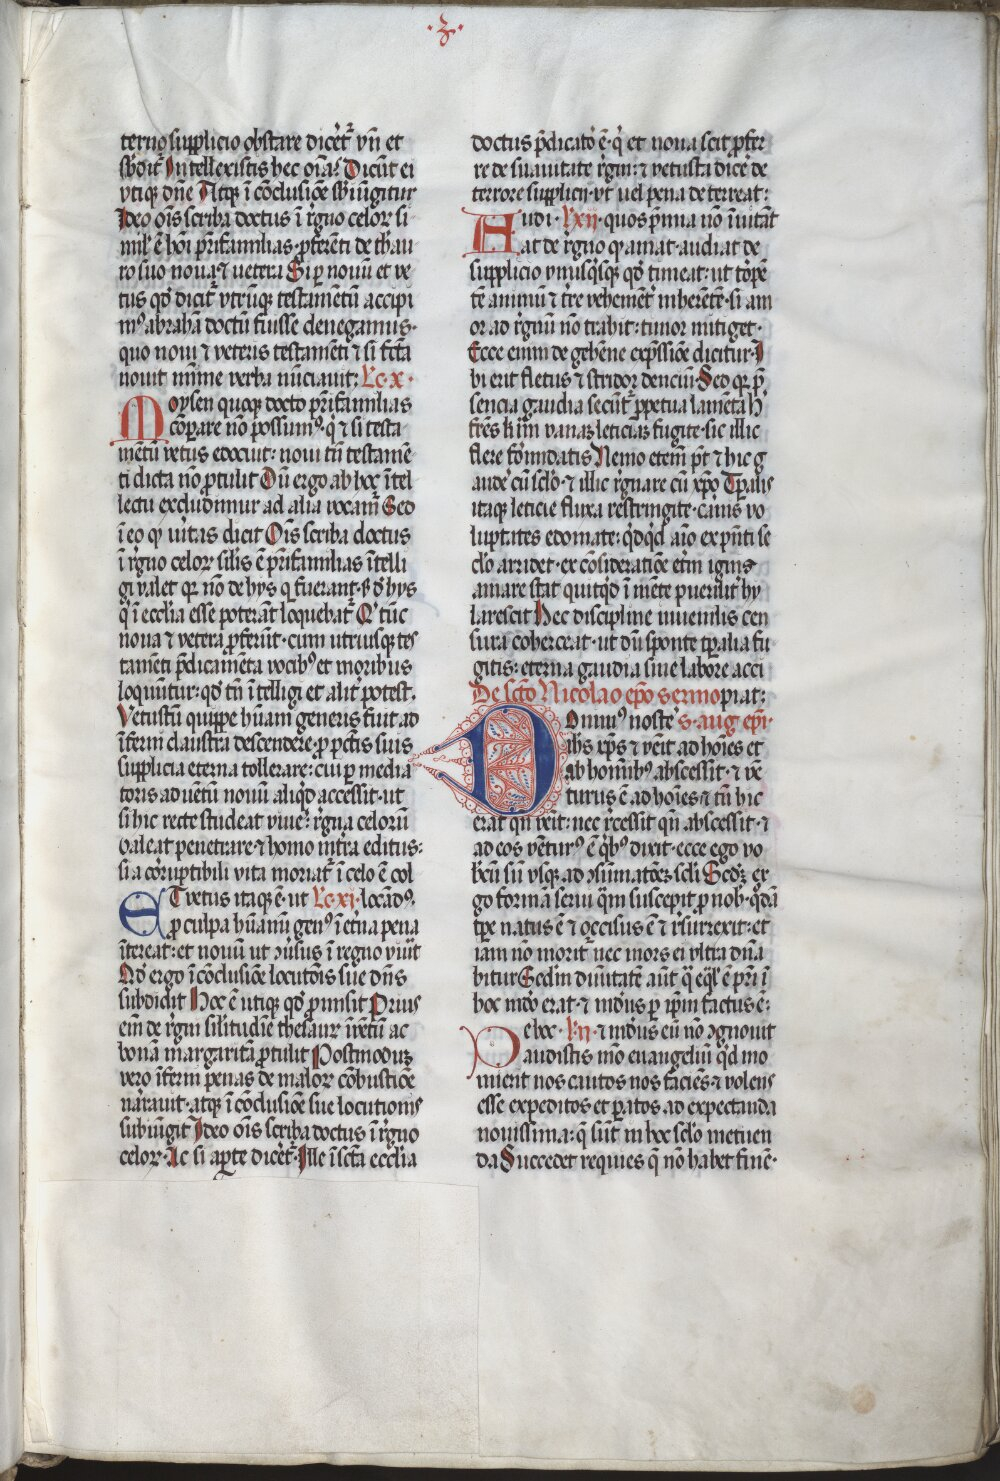 ·3·
terno supplicio obstare dicet᷑ vn̄ et
sb̓dit᷑ Intellexistis hec oīa? Dicūt ei
vtiqꝫ dn̄e Atqꝫ ī cōclusiōe sb̓iūgitur
Ideo oīs scriba doctus ī r̓gno celoꝝ si
mil̓ ē hoī pr̄ifamilias ꝓferēti de th̓au
ro suo noua ⁊ uetera Si ꝑ nouū et ve
tus qd̓ dicit᷑ vtrūqꝫ testamētū accipi
mꝰ abrahā doctū fuisse denegamus·
quo noui ⁊ veteris testamēti ⁊ si fc̄ta
nouit mīme verba nūciauit: Lc·x·
Moysen quoqꝫ docto pr̄ifamilias
cōparare nō possumꝰ· q̓ ⁊ si testa
mētū vetus edocuit: noui tn̄ testamē
ti dicta nō ꝓtulit Dū ergo ab hoc ītel
lectu excludimur ad alia vocam᷑ Sed
ī eo qꝫ u̓itas dicit Oīs scriba doctus
ī r̓gno celoꝝ sil̓is ē pr̄ifamilias ītelli
gi valet qꝫ nō de hys q̄ fuerant· sꝫ d̓ hys
q̓ ī ecclīa esse poterāt loquebat᷑ Q̓ tūc
noua ⁊ vetera ꝓferūt· cum utriusqꝫ tes
tamēti p̄dicamēta vocibꝰ et moribus
loquūtur: qd̓ tn̄ ītelligi et alit᷑ potest·
Vetustū quippe hu̓ani generis fuit ad
īferni claustra descendere· ꝓ pctīs suis
supplicia eterna tollerare: cui ꝑ media
toris aduētū nouū aliq̓d accessit· ut
si hic recte studeat viue̓: r̓gna celoꝝ
valeat penetrare· ⁊ homo īn tr̄a editus:
si a corruptibili vita moriat᷑ ī celo ē col
ET vetus itaqꝫ ē· ut Lc·xi· locādꝰ·
ꝓ culpa hu̓anū genꝰ ī et̓na pena
īt̓ereat: et nouū ut ꝯu̓sus ī regno viuat
Qd̓ ergo ī cōclusiōe locutōis sue dn̄s
subdidit Hoc ē utiqꝫ qd̓ ꝓmisit Prius
eīm de r̓gni sil̓itudīe thesauꝝ īuētū ac
bonā margaritā ꝓtulit Postmoduꝫ
vero īferni penas de maloꝝ cōbustiōe
narrauit· atqꝫ ī cōclusiōe sue locutionis
subiūgit Ideo oīs scriba doctus ī r̓gno
celoꝝ· Ac si aꝑte dicet᷑· Ille ī sc̄ta ecclīa
doctus p̄dicatoꝝ ē· q̓ et noua scit ꝓfer
re de suauitate r̓gni: ⁊ vetusta dice̓ de
terrore supplicii· vt uel pena deterreat:
Audi· Lxij· quos p̄mia nō īuitāt
at de r̓gno qꝫ amat· audiat de
supplicio vnusq̓sqꝫ qd̓ timeat: ut torpē
tē animū ⁊ tr̄e vehemēt᷑ inherētē· si am
or ad r̓gnū nō trahit: timor mitiget·
Ecce enim de gehēne exp̄ssiōe dicitur· I
bi erit fletus ⁊ stridor denciū· Sed qꝫ p̄
sencia gaudia secūt᷑ ꝑpetua lamēta h̓
fr̄es kīmi vanas leticias fugite· sic illic
flere formidatis Nemo etem̄ pt̄ ⁊ hic g
aude̓ cū scl̓o· ⁊ illic r̓gnare cū xp̄o Tꝑalis
itaqꝫ leticie fluxa restringite· carnis vo
luptates edomate: q̓dq̓d aīo ex p̄nti se
cl̓o arridet· ex cōsideratiōe et̓ni ignis
amarescat quitq̓d ī mēte puerilit᷑ hy
larescit Hec discipline iuuenilis cen
sura coherceat· ut dū sponte tꝑalia fu
gitis: eterna gaudia sine labore acci
De sc̄to Nicolao ep̄o sermo piat:
Dominꝰ noste s· aug ep̄i·
ihs xp̄s ⁊ veīt ad hoīes et
ab hominibꝰ abscessit· ⁊ vē
turus ē ad hoīes ⁊ tn̄ hic
erat qn̄ veīt: nec r̓cessit qn̄ abscessit· ⁊
ad eos vēturꝰ ē q̓bꝰ dixit· ecce ego vo
bc̄ū sū vsqꝫ ad ꝯsūmatōeꝫ scl̓i Scd̓ꝫ er
go formā serui q̄m suscepit ꝓ nob̓· q̓dā
tꝑe natus ē ⁊ occisus ē ⁊ r̓surrexit: et
iam nō morit᷑ nec mors ei vltra dn̄a
bitur Scd̓m diuitatē aūt q̄ eq̄l̓ ē pr̄i ī
hoc mūdo erat· ⁊ mūdus ꝑ ip̄m factus ē:
De hoc· l·ij· ⁊ mūdus eū nō ꝯgnouit
audistis mō euangeliū q̓d mo
nuerit nos cautos nos faciēs ⁊ volens
esse expeditos et ꝑatos ad expectanda
nouissima: q̄ sūt in hoc scl̓o metuen
da Succedet requies q̄ nō habet finē·